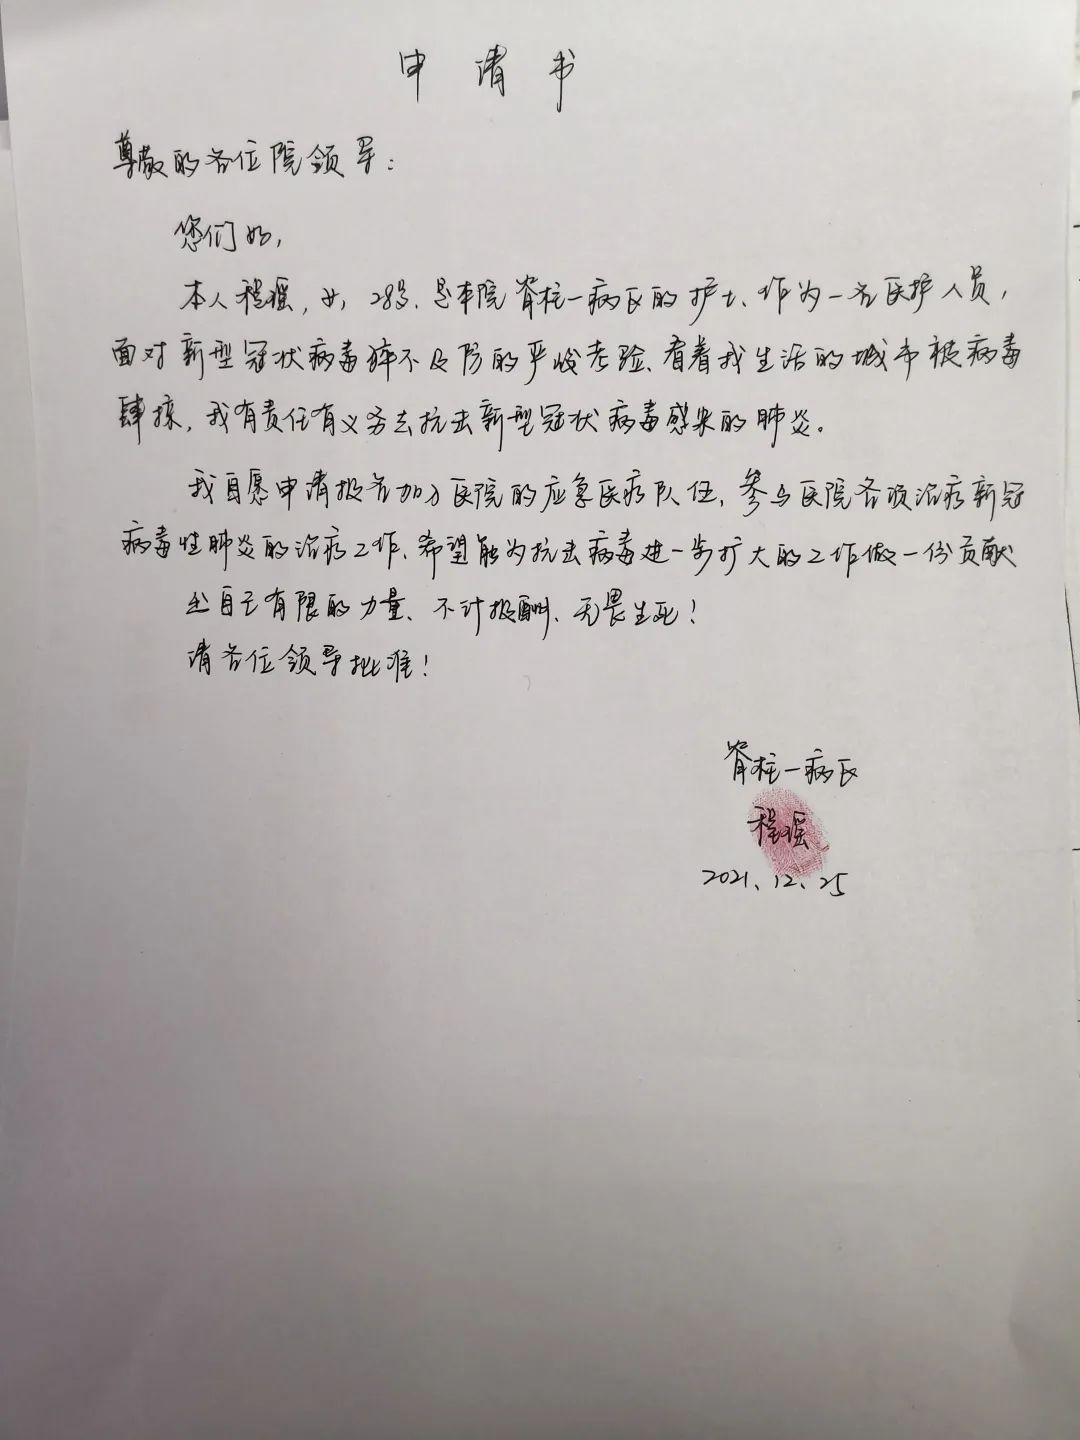 申请书
尊敬的各位院领导：
您们好，
本人程瑶，女，28岁、是本院脊柱一病区的护士、作为一名医护人员，
面对新型冠状病毒猝不及防的严峻考验、看着我生活的城市被病毒
肆掠，我有责任有义务去抗击新型冠状病毒感染的肺炎。
我自愿申请报名加入医院的应急医疗队伍，参与医院各项治疗新冠
病毒性肺炎的治疗工作、希望能为抗击病毒进一步扩大的工作做一份贡献
出自己有限的力量、不计报酬、无畏生死！
请各位领导批准！
脊柱一病区
程瑶
2021、12、25